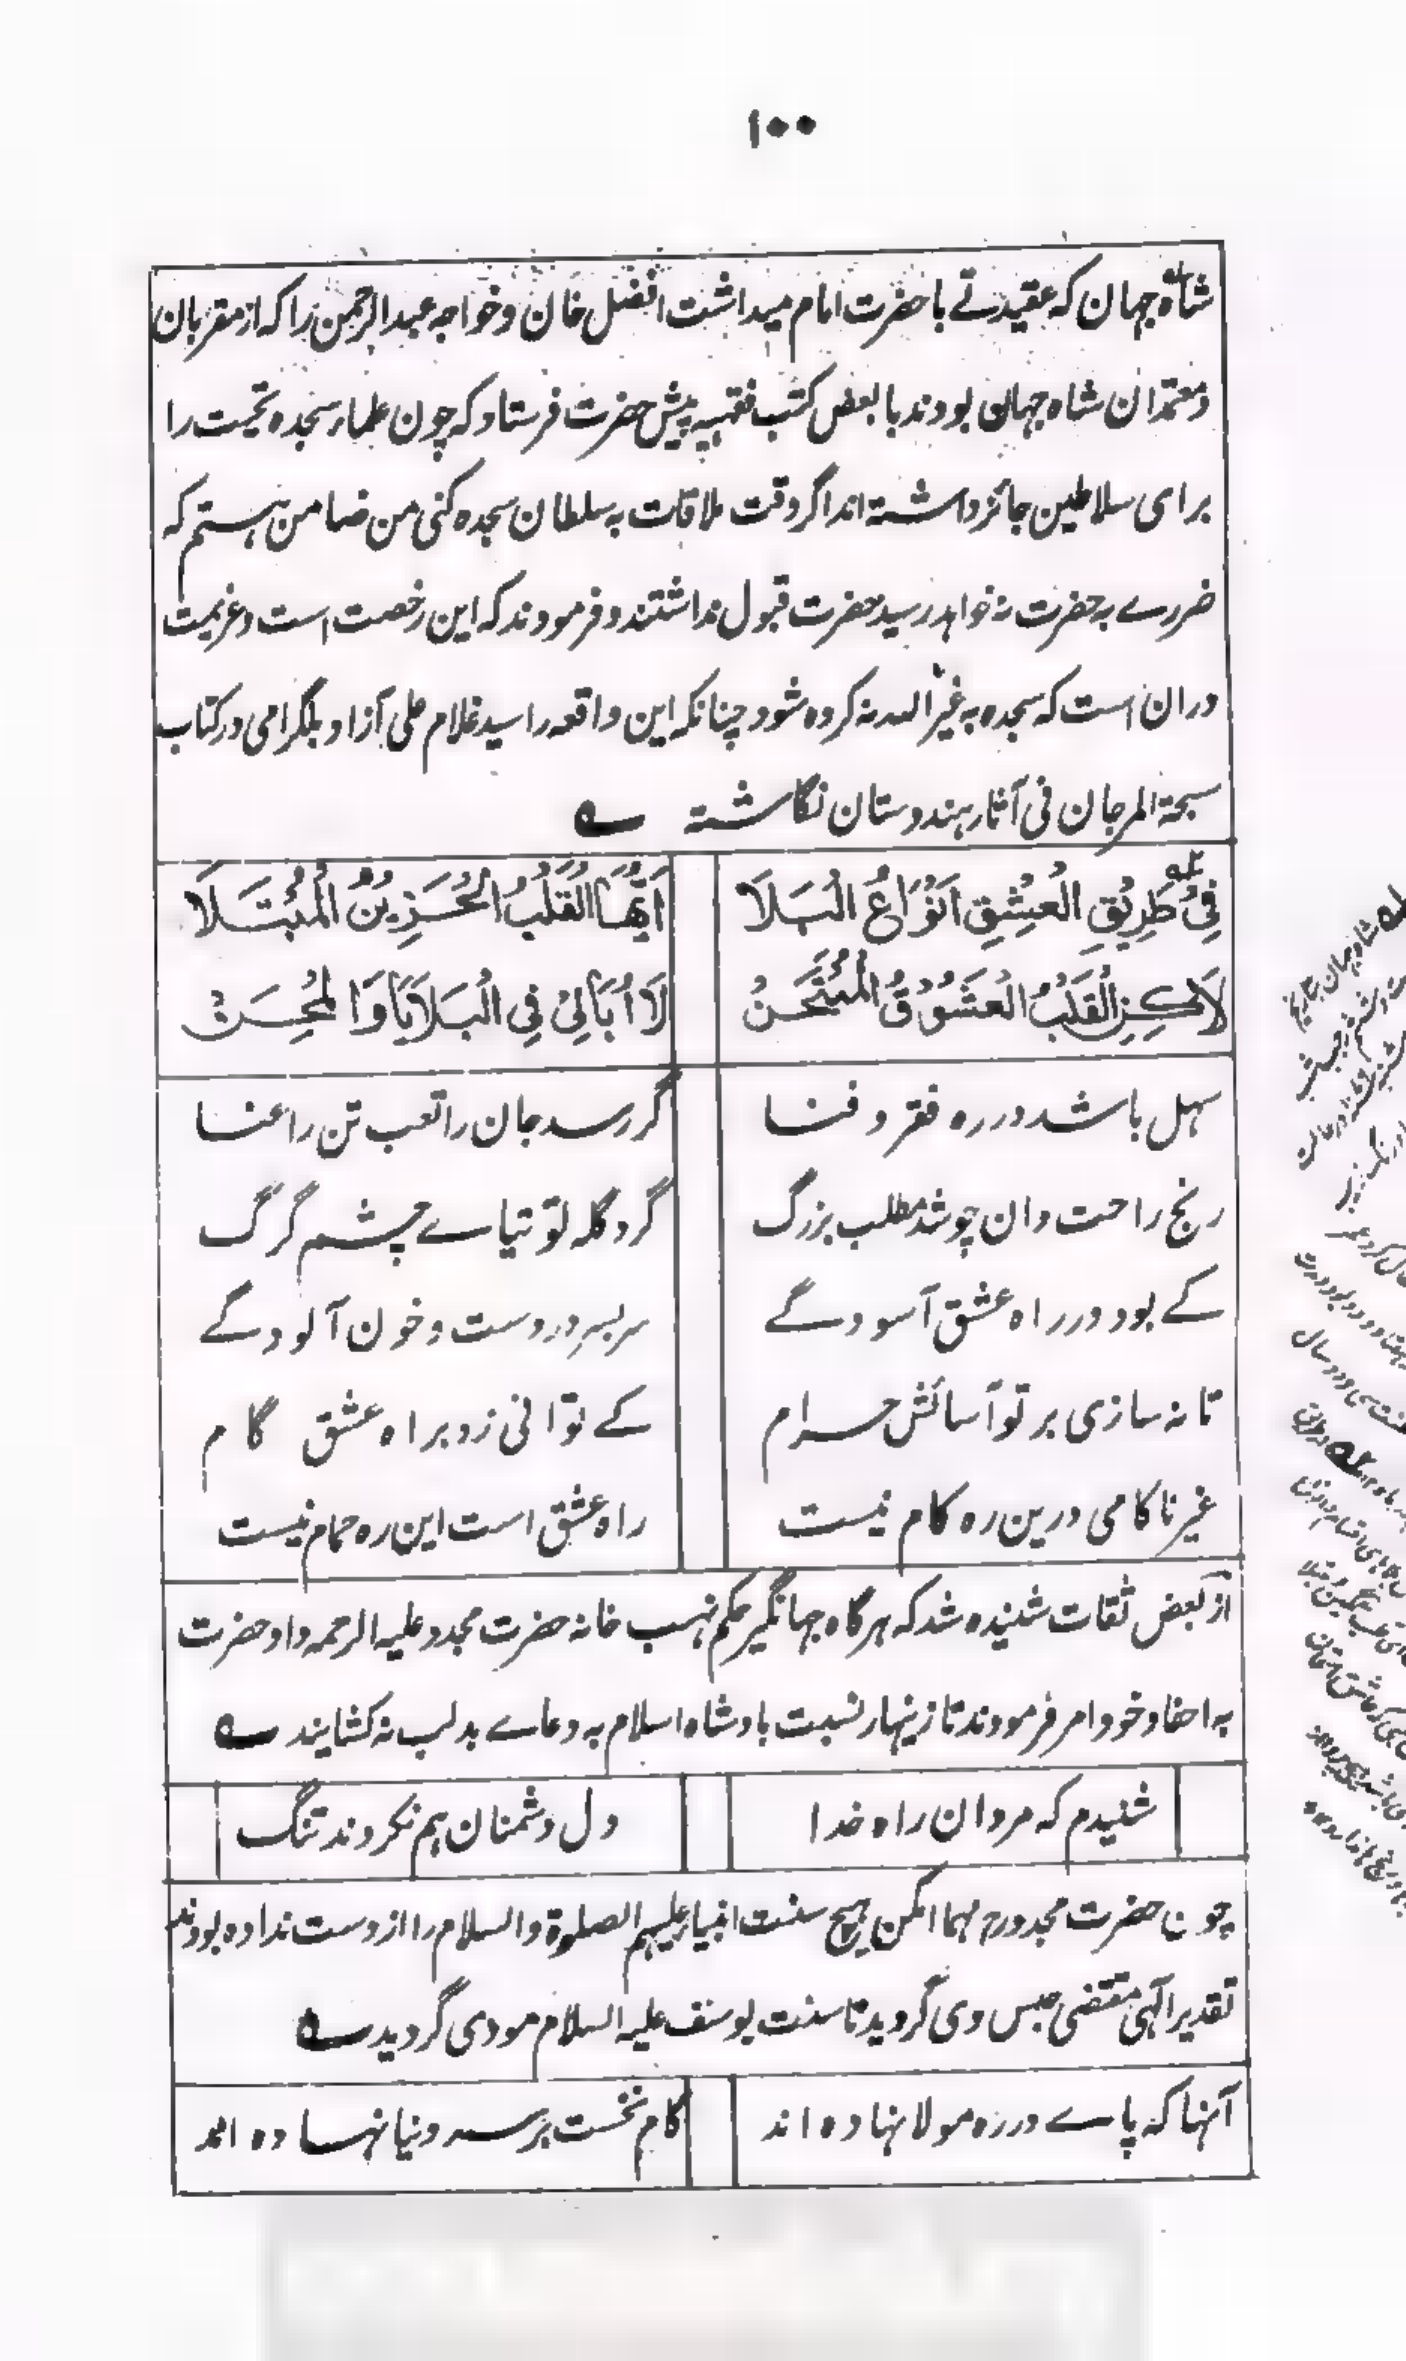 ۱۰۰
شاه جهان که عقیدتے با حضرت امام میداشت افضل خان و خواجه عبدالرحمن را که از مقربان
و معتمدان شاه جهان بودند با بعض کتب فقهیه پیش حضرت فرستاد که چون علماء سجده تحیت را
برای سلاطین جائز داشته اند اگر وقت ملاقات به سلطان سجده کنی من ضامن هستم که
ضررے به حضرت نه خواهد رسید حضرت قبول نداشتند و فرمودند که این رخصت است و عزیمت
دران است که سجده به غیر الله نه کرده شود چنانکه این واقعه را سید غلام علی آزاد بلگرامی در کتاب
سبحة المرجان فی آثار هندوستان نگاشته ؎
فِیْ طَرِیْقِ الْعِشْقِ اَنْوَاعُ الْبَلَا اَیُّهَا الْقَلْبُ الْحَزِیْنُ الْمُبْتَلَا
لَاکِنِ الْقَلْبُ الْعَشُوْقُ الْمُمْتَحَنُ لَا اُبَالِیْ فِی الْبَلَایَا وَالْمِحَنْ
سهل باشد در ره فقر و فنا گر رسد جان را تعب تن را عنا
رنج راحت دان چو شد مطلب بزرگ گرد گله توتیاے چشم گرگ
کے بود در راه عشق آسودگے سربسر دردست و خون آلودگے
تا نه سازی بر تو آسائش حرام کے توانی زد براه عشق گام
غیر ناکامی درین ره کام نیست راه عشق است این ره حمام نیست
از بعض ثقات شنیده شد که هرگاه جهانگیر حکم نهب خانه حضرت مجدد علیه الرحمه داد حضرت
به احفاد خود امر فرمودند تا زینهار نسبت بادشاه اسلام به دعاے بد لب نه کشایند ؎
شنیدم که مردان راه خدا دل دشمنان هم نکردند تنگ
چون حضرت مجدد رح مهما امکن هیچ سنت انبیاء علیهم الصلوة والسلام را از دست نداده بودند
تقدیر الهی مقتضی حبس وی گردید تا سنت یوسف علیه السلام مودی گردید ؎
آنها که پاے در ره مولا نهاده اند گام نخست برسر دنیا نهاده اند